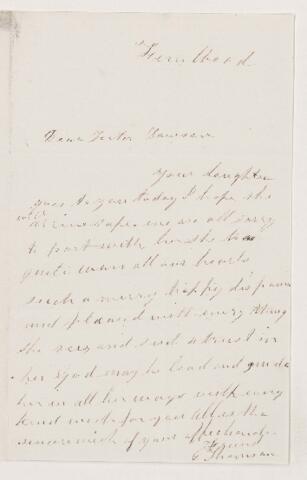 Fernwood
Dear Doctor Dawson
Your daughter
goes to you today I hope she
will
arrive safe. we are all sorry
to part with her she has
quite won all our hearts
such a merry happy disposi
and pleased with every thing
she sees and such a trust in
her God may he lead and guide
her in all her ways with every
kind wish for you all is the
sincere wish of your affectionate
Friend